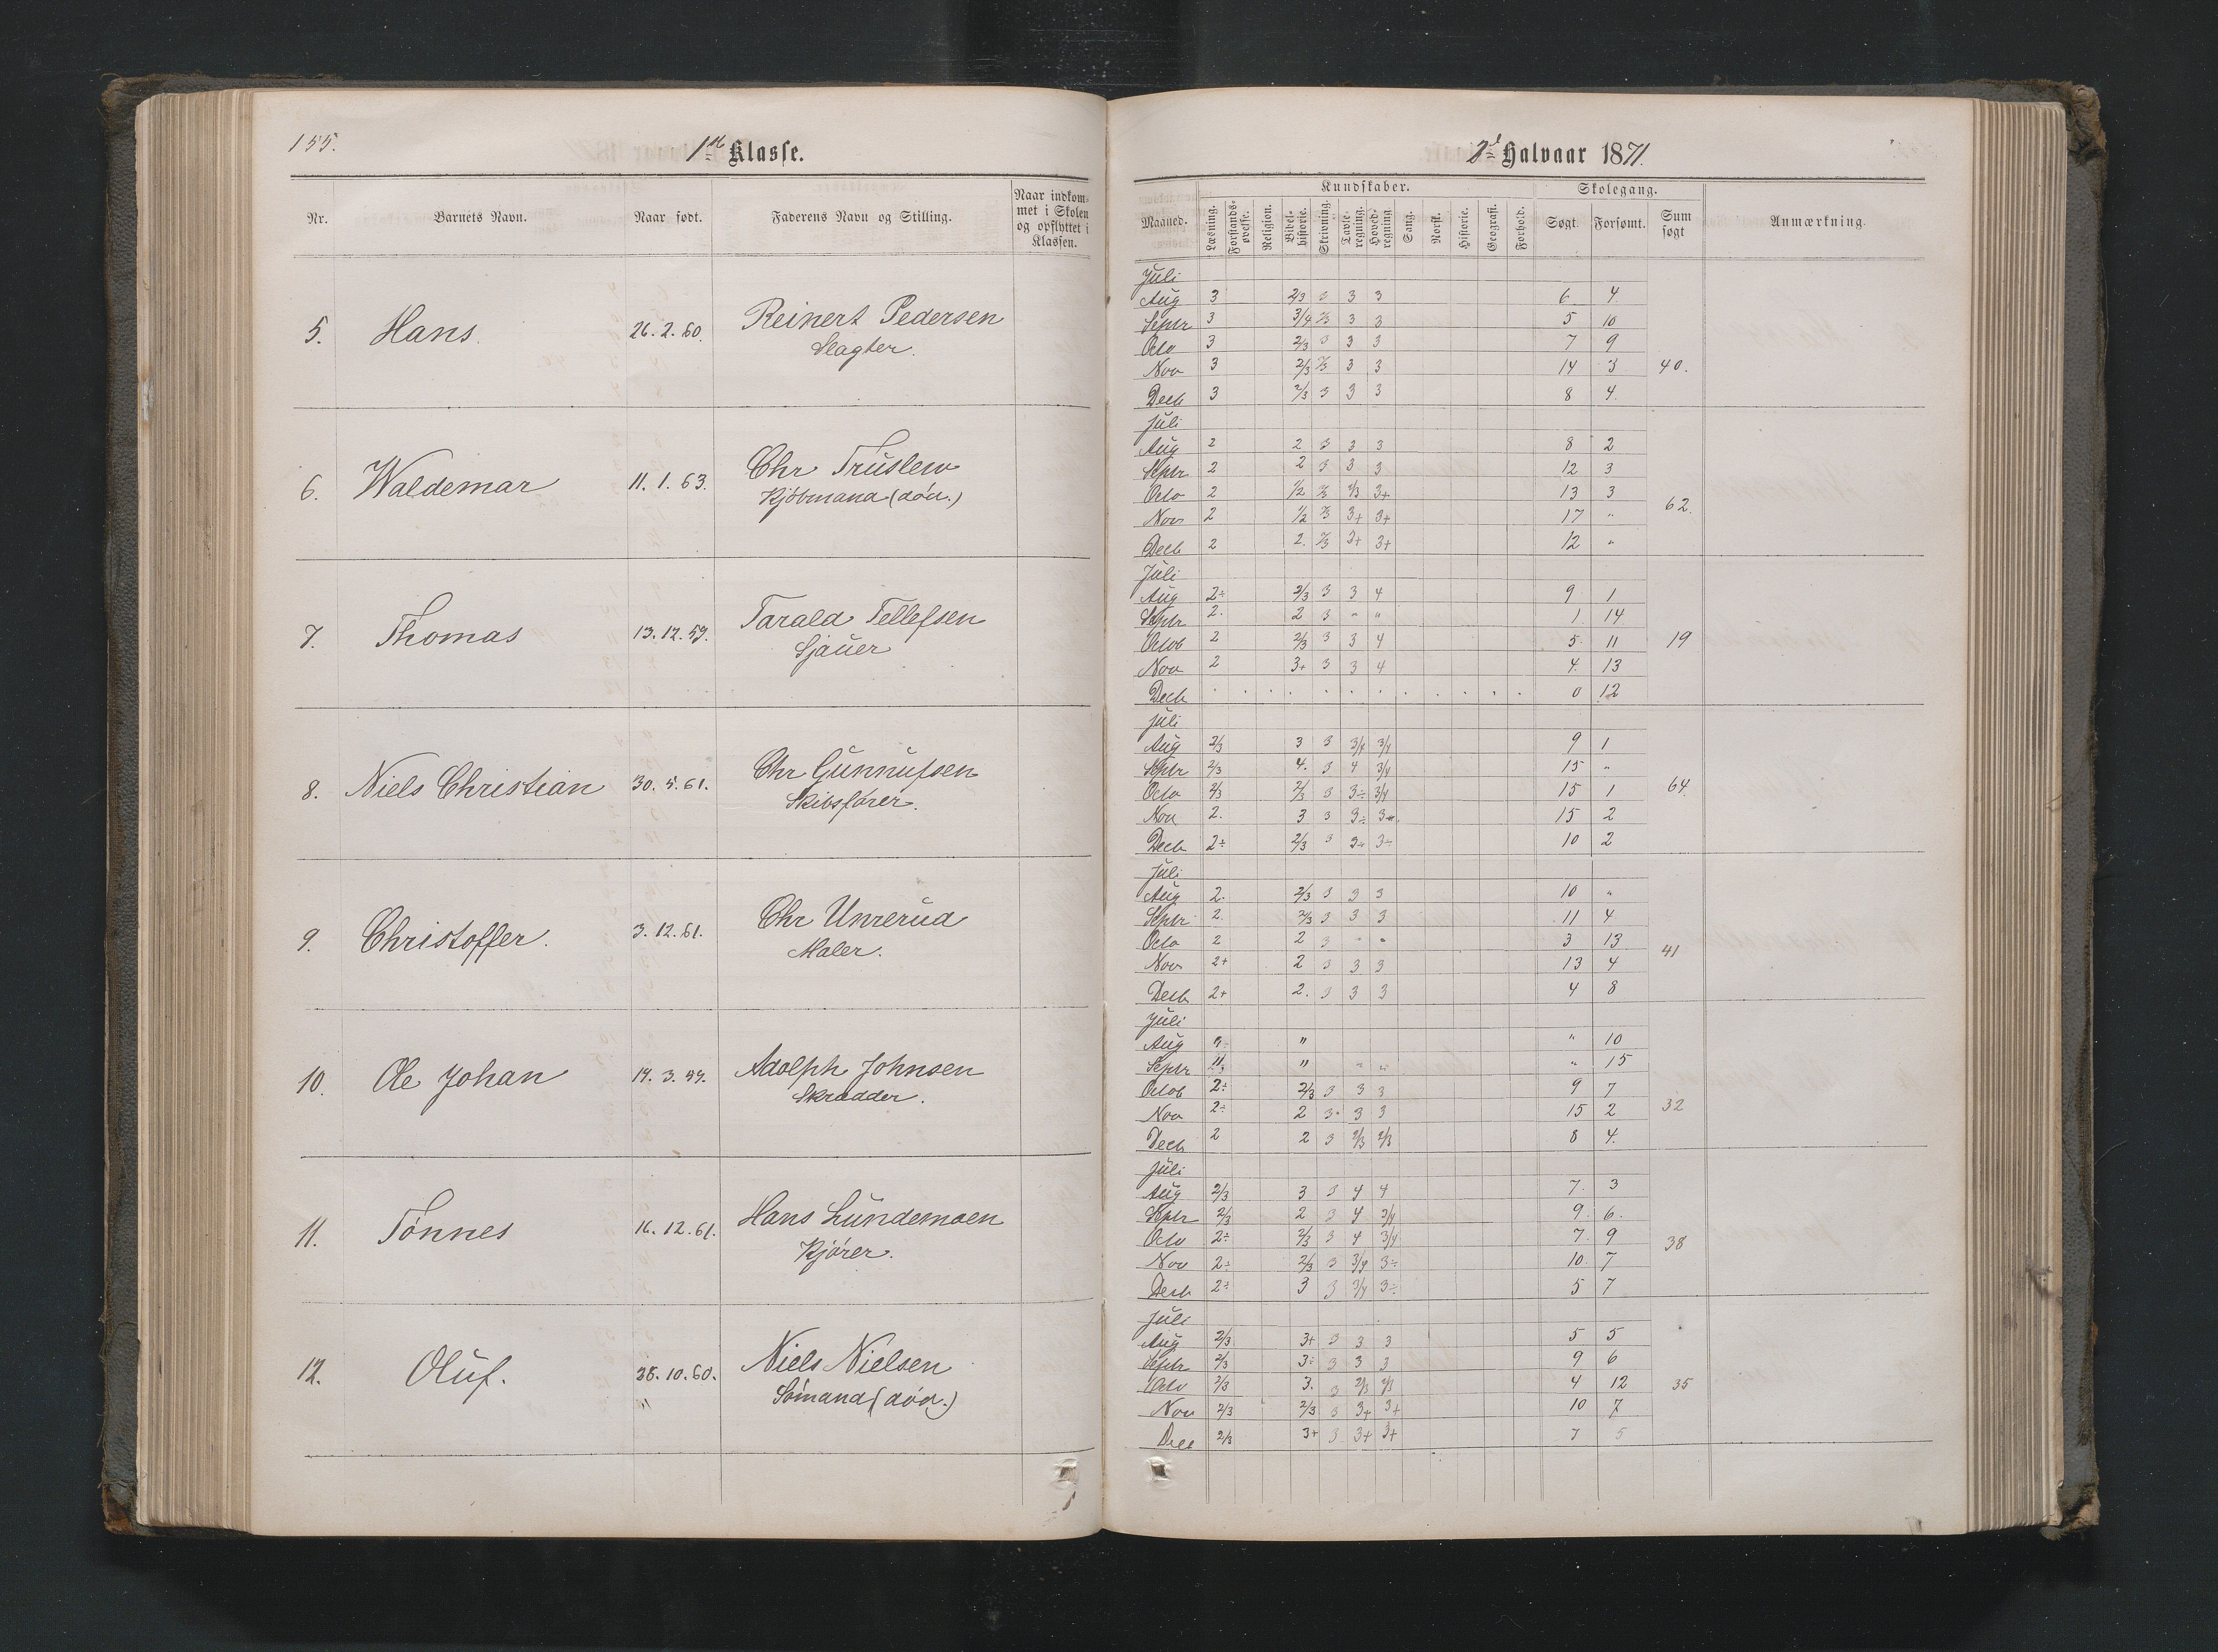 155.
1ste Klasse.
Nr. Barnets Navn. Naar født. Faderens Navn og Stilling. Naar indkom- met i Skolen og opflyttet i Klassen.
5. Hans. 26.2.60. Reinert Pedersen
Slagter.
6. Waldemar 11.1.63. Chr Truslew
Kjöbmand (död.)
7. Thomas 13.12.59. Tarald Tellefsen
Sjauer
8. Niels Christian 30.5.61. Chr Gunnufsen
Skibsfører.
9. Christoffer. 3.12.61. Chr Unrerud
Maler.
10. Ole Johan 19.3.59. Adolph Johnsen
Skradder.
11. Tönnes 16.12.61. Hans Lundemoen
Kjörer.
12. Oluf. 28.10.60. Niels Nielsen
" Sömand (död.)
2det Halvaar 1871.
Kundskaber. Skolegang.
Maaned. Læsning. Forstands- øvelse. Religion. Bibel- historie. Skrivning. Tavle- regning. Hoved- regning. Sang. Norsk. Historie. Geografi. Forhold. Søgt. Forsømt. Sum søgt Anmærkning.
Juli
Aug 3 2/3 3 3 3 6 4
Septr 3 3/4 2/3 3 3 5 10
Octo 3 2/3 3 3 3 7 9
Nov 3 2/3 2/3 3 3 14 3 40.
Decb 3 2/3 3 3 3 8 4
Juli
Aug 2 2 3 3 3 8 2
Septr 2 2 3 3 3 12 3
Octo 2 1/2 2/3 2/3 3+ 13 3 62.
Nov 2 1/2 2/3 3+ 3+ 17 "
Decb 2 2. 2/3 3+ 3+ 12 "
Juli
Aug 2÷ 2/3 3 3 4 9 1
Septr 2. 2 3 " " 1 14
Octob 2 2/3 3 3 4 5 11 19
Nov 2 3+ 3 3 4 4 13
Decb . . . . . . . . . . . 0 12
Juli
Aug 2/3 3 3 3/4 3/4 9 1
Septr 2/3 4. 3 4 3/4 15 "
Octo 2/3 2/3 3 3÷ 3/4 15 1 64
Nov 2. 3 3 3÷ 3÷ 15 2
Decb 2÷ 2/3 3 3÷ 3÷ 10 2
Juli
Aug 2. 2/3 3 3 3 10 "
Septr 2. 2/3 3 3 3 11 4
Octo 2 2 3 " " 3 13 41
Nov 2+ 2 3 3 3 13 4
Decb 2+ 2. 3 3 3 4 8
Juli
Aug " " 10
Septr " " " " 15
Octob 2÷ 2/3 3 3 3 9 7
Nov 2÷ 2 3 3 3 15 2 32
Decb 2 2 3 2/3 2/3 8 4.
Juli
Aug 2/3 3 3 4 4 7. 3
Septr 2/3 2 3 4 3/4 9. 6.
Octo 2÷ 2/3 3 4 3/4 7. 9 38
Nov 2÷ 2/3 3 3/4 3÷ 10. 7
Decb 2÷ 3 3 3/4 3÷ 5 7
Juli
Aug 2/3 3+ 3 3 3 5 5
Septr 2/3 3÷ 3 3 3 9 6
Octo 2/3 3. 3 2/3 2/3 4 12 35
Nov 2/3 2/3 3 3+ 3+ 10 7
Dec 2/3 3+ 3 3+ 3+ 7 5